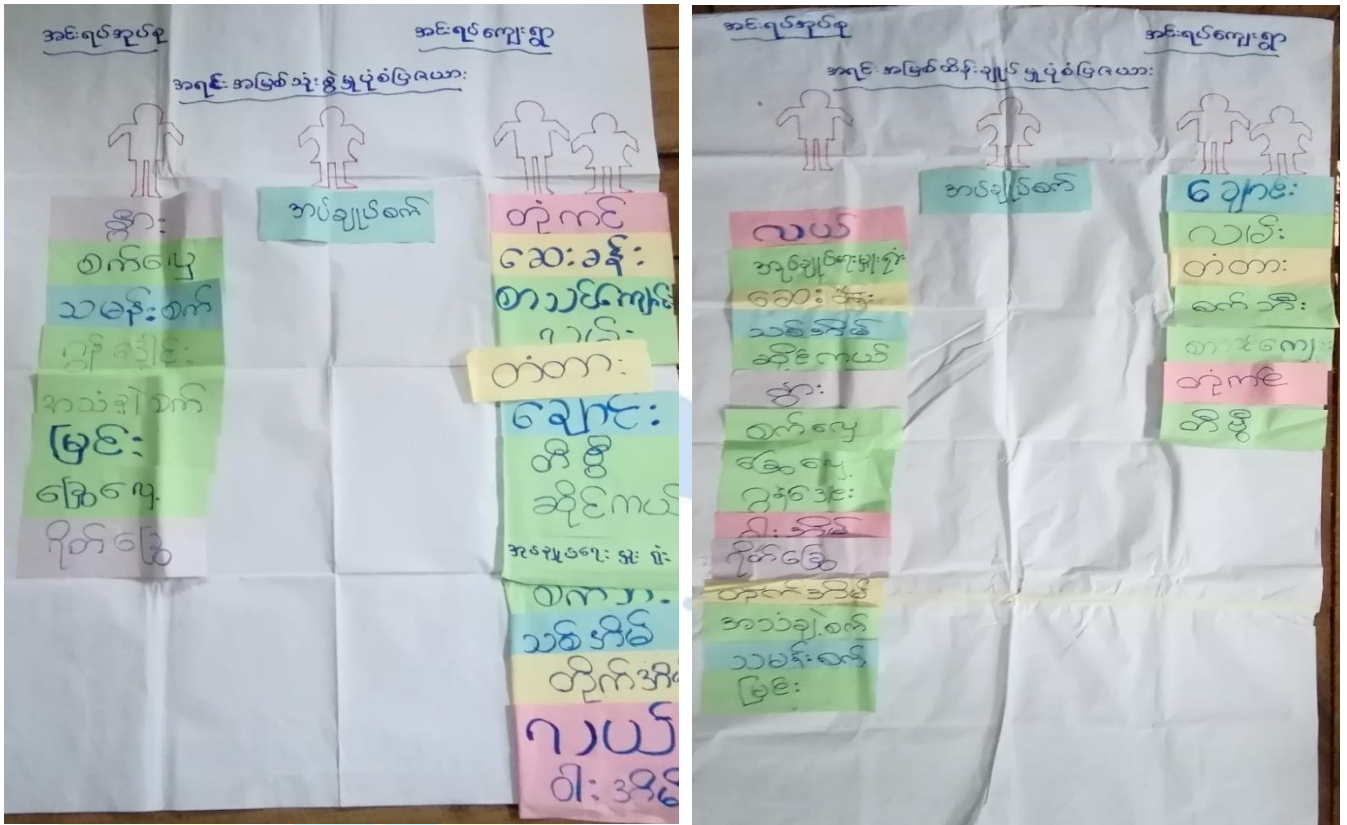 အင်းရပ်အုပ်စု
အင်းရပ်ကျေးရွာ
အရင်းအမြစ်သုံးစွဲမှုပုံစံပြဇယား
နွား
စက်လှေ
သမန်းစက်
အသံချဲ့စက်
မြင်း
ခြွေလှေ့
ရိတ်ခြွေ
အပ်ချုပ်စက်
တုံကင်
ဆေးခန်း
စာသင်ကျောင်း
လမ်း
တံတား
ချောင်း
တီဗွီ
ဆိုင်ကယ်
အုပ်ချုပ်ရေးမှူးရုံး
သစ်အိမ်
တိုက်အိမ်
လယ်
ဝါးအိမ်
အင်းရပ်အုပ်စု
အင်းရပ်ကျေးရွာ
အရင်းအမြစ်ထိန်းချုပ်မှုပုံစံပြဇယား
လယ်
အုပ်ချုပ်ရေးမှူးရုံး
ဆေးခန်း
သစ်အိမ်
ဆိုင်ကယ်
နွား
စက်လှေ
ခြွေလှေ့
ဝါးအိမ်
ရိတ်ခြွေ
တိုက်အိမ်
အသံချဲ့စက်
သမန်းစက်
မြင်း
အပ်ချုပ်စက်
ချောင်း
လမ်း
တံတား
စက်ဘီး
တုံကင်
တီဗွီ